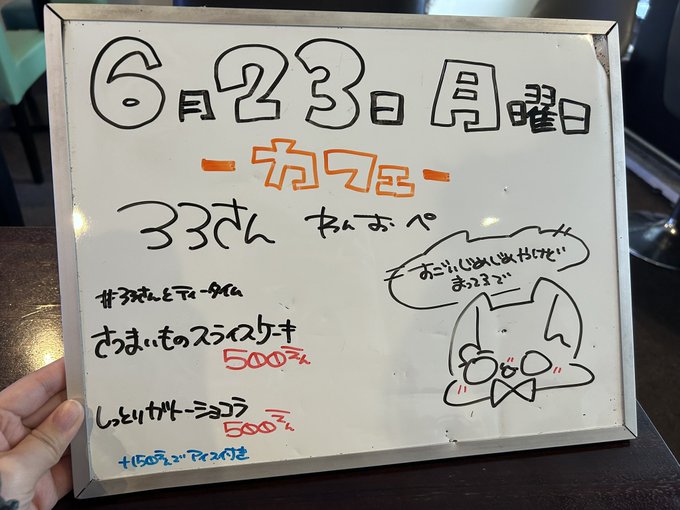 6月23日 月曜日
-カフェ-
33さん わんおぺ
すごいじめじめやけど
まってるで
#33さんとティータイム
さつまいものスライスケーキ
500えん
しっとりガトーショコラ
500えん
+150えんでアイス付き